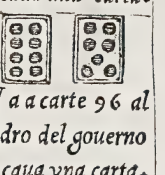 a a carte 96 al
dro del gouerno
caua vna carta.